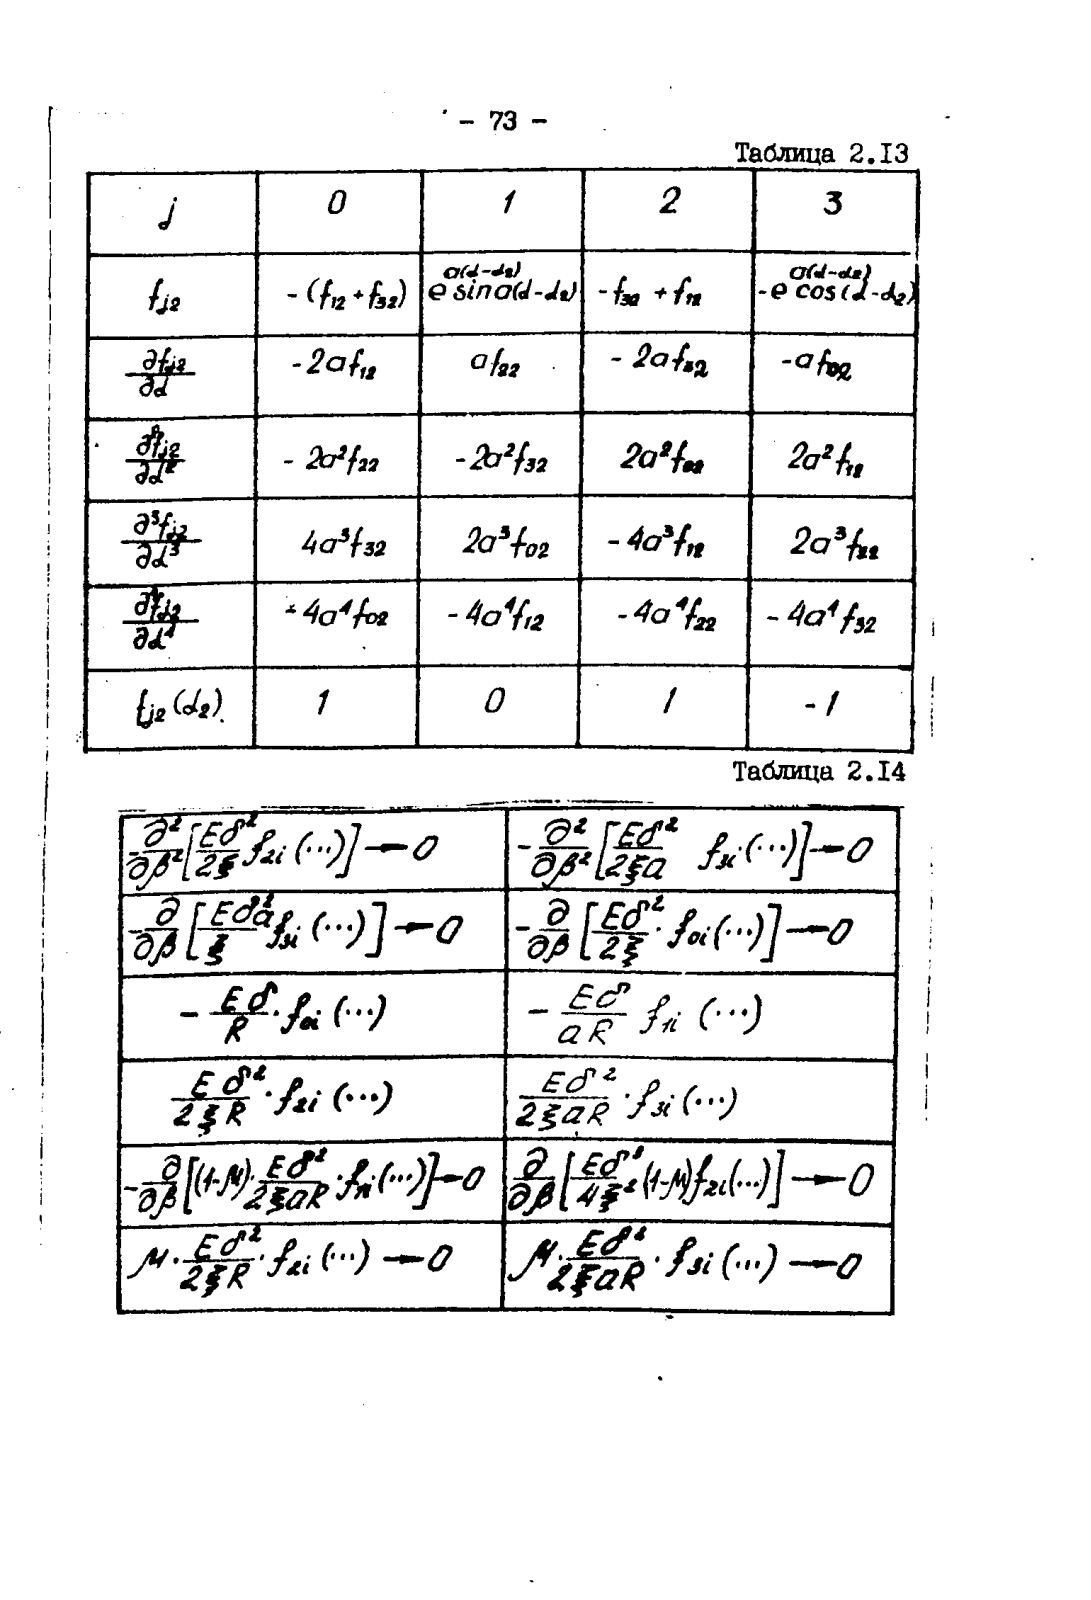 - 73 -
Таблица 2.13
j | 0 | 1 | 2 | 3
f_{j2} | -(f_{12} + f_{32}) | e^{a(α-α_2)} sin a(α-α_2) | -f_{32} + f_{12} | -e^{a(α-α_2)} cos(α-α_2)
∂f_{j2}/∂α | -2af_{12} | af_{22} | -2af_{32} | -af_{02}
∂²f_{j2}/∂α² | -2a²f_{22} | -2a²f_{32} | 2a²f_{02} | 2a²f_{12}
∂³f_{j2}/∂α³ | 4a³f_{32} | 2a³f_{02} | -4a³f_{12} | 2a³f_{22}
∂⁴f_{j2}/∂α⁴ | -4a⁴f_{02} | -4a⁴f_{12} | -4a⁴f_{22} | -4a⁴f_{32}
f_{j2}(α_2) | 1 | 0 | 1 | -1
Таблица 2.14
-∂²/∂β² [Eδ²/2ξ f_{2i}(...)] → 0 | -∂²/∂β² [Eδ²/2ξa f_{3i}(...)] → 0
-∂/∂β [Eδ²a/ξ f_{3i}(...)] → 0 | -∂/∂β [Eδ²/2ξ · f_{0i}(...)] → 0
-Eδ/R · f_{0i}(...) | -Eδ/aR f_{1i}(...)
Eδ²/2ξR · f_{2i}(...) | Eδ²/2ξaR · f_{3i}(...)
-∂/∂β [(1-μ) · Eδ²/2ξaR · f_{1i}(...)] → 0 | ∂/∂β [Eδ²/4ξ² (1-μ) f_{2i}(...)] → 0
μ · Eδ²/2ξR · f_{2i}(...) → 0 | μ · Eδ²/2ξaR · f_{3i}(...) → 0